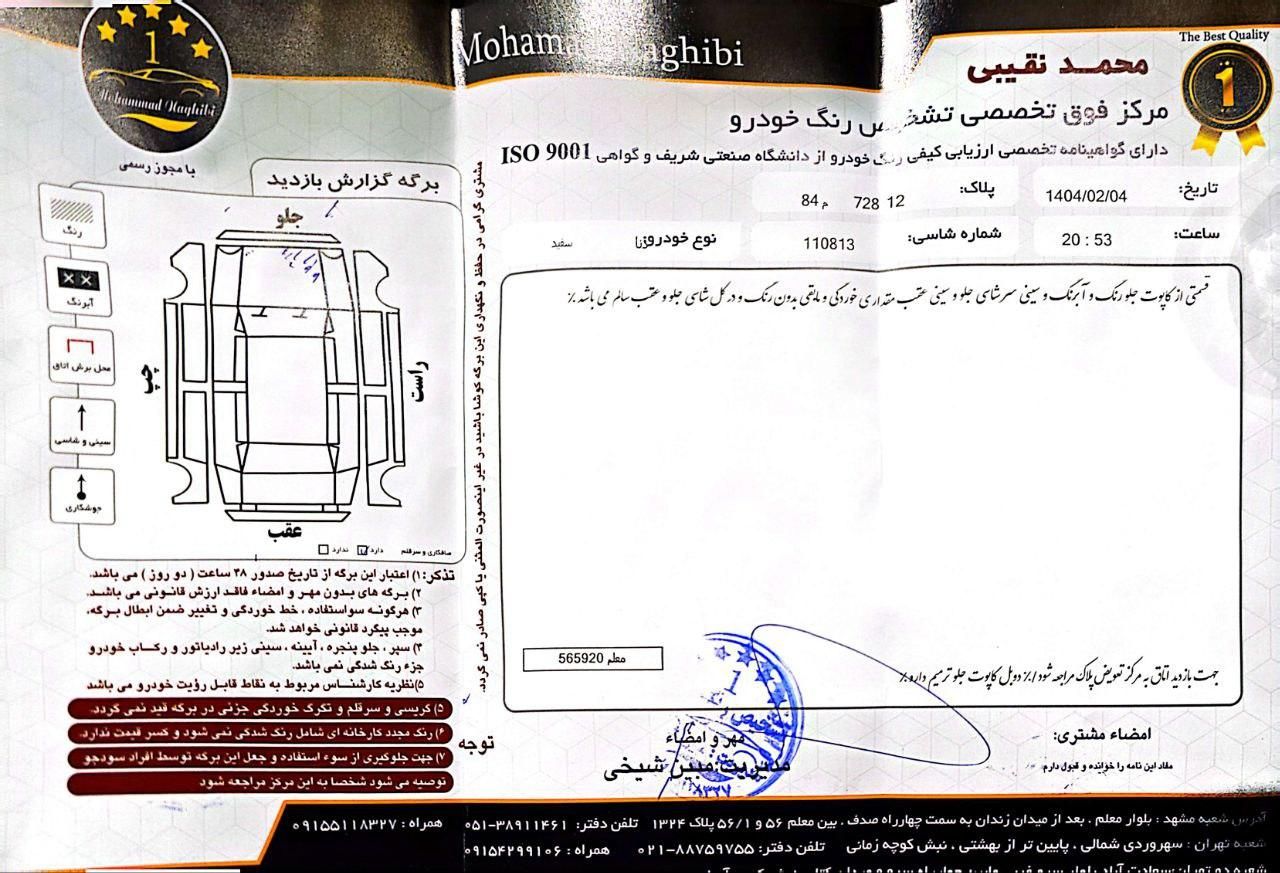 The Best Quality
1
محمد نقیبی
مرکز فوق تخصصی رنگ خودرو
دارای گواهینامه تخصصی ارزیابی کیفی رنگ خودرو از دانشگاه صنعتی شریف و گواهی ISO 9001
تاریخ: 1404/02/04
پلاک: 12 728 م 84
ساعت: 20 : 53
شماره شاسی: 110813
نوع خودرو: سفید
قسمتی از کاپوت جلو رنگ و آبرنگ و سینی سرشاسی جلو و سینی عقب مقداری خوردگی و مابقی بدون رنگ و در کل شاسی جلو و عقب سالم می باشد %
جهت بازدید اتاق به مرکز تعویض پلاک مراجعه شود / % دوبل کاپوت جلو ترمیم دارد %
معلم 565920
امضاء مشتری:
مفاد این نامه را خوانده و قبول دارم.
مهر و امضاء
مدیریت مبین شیخی
مشتری گرامی در حفظ و نگهداری این برگه کوشا باشید در غیر اینصورت المثنی یا کپی صادر نمی گردد.
1
Mohammad Naghibi
با مجوز رسمی
برگه گزارش بازدید
جلو
چپ
راست
عقب
رنگ
آبرنگ
محل برش اتاق
سینی و شاسی
جوشکاری
صافکاری و سرقلم دارد ندارد
تذکر: ۱) اعتبار این برگه از تاریخ صدور ۴۸ ساعت ( دو روز ) می باشد.
۲) برگه های بدون مهر و امضاء فاقد ارزش قانونی می باشد.
۳) هرگونه سواستفاده ، خط خوردگی و تغییر ضمن ابطال برگه،
موجب پیگرد قانونی خواهد شد.
۴) سپر ، جلو پنجره ، آیینه ، سینی زیر رادیاتور و رکاب خودرو
جزء رنگ شدگی نمی باشد.
۵) نظریه کارشناس مربوط به نقاط قابل رؤیت خودرو می باشد
توجه
۵) گریسی و سرقلم و تگرگ خوردگی جزئی در برگه قید نمی گردد.
۶) رنگ مجدد کارخانه ای شامل رنگ شدگی نمی شود و کسر قیمت ندارد.
۷) جهت جلوگیری از سوء استفاده و جعل این برگه توسط افراد سودجو
توصیه می شود شخصا به این مرکز مراجعه شود
آدرس شعبه مشهد : بلوار معلم ، بعد از میدان زندان به سمت چهارراه صدف ، بین معلم ۵۶ و ۵۶/۱ پلاک ۱۳۲۴ تلفن دفتر: ۳۸۹۱۱۴۶۱-۰۵۱ همراه : ۰۹۱۵۵۱۱۸۳۲۷
شعبه تهران : سهروردی شمالی ، پایین تر از بهشتی ، نبش کوچه زمانی تلفن دفتر: ۸۸۷۵۹۷۵۵-۰۲۱ همراه : ۰۹۱۵۴۲۹۹۱۰۶